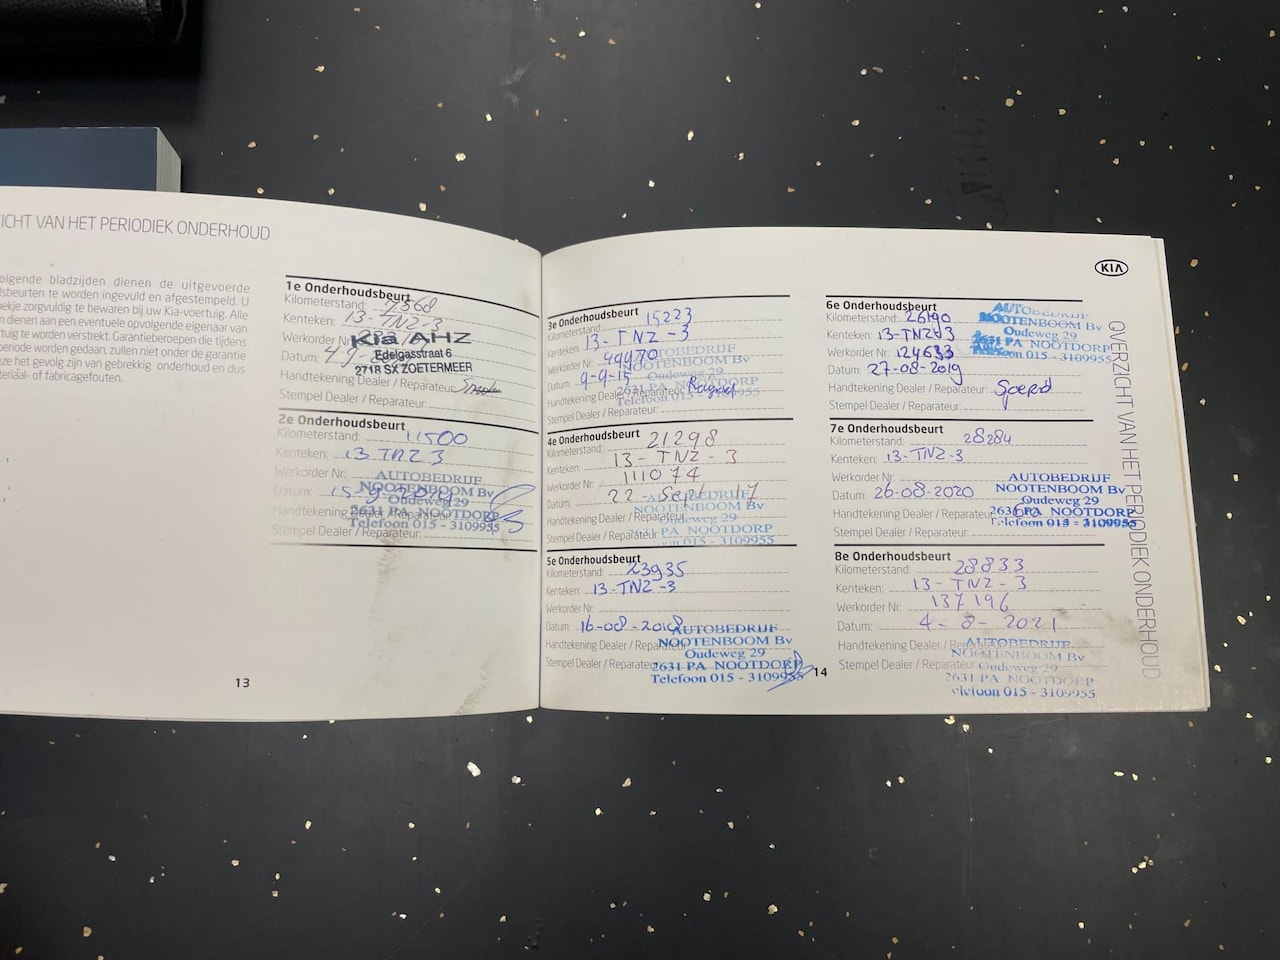 ICHT VAN HET PERIODIEK ONDERHOUD
olgende bladzijden dienen de uitgevoerde
sbeurten te worden ingevuld en afgestempeld. U
ekje zorgvuldig te bewaren bij uw Kia-voertuig. Alle
n dienen aan een eventuele opvolgende eigenaar van
rtuig te worden verstrekt. Garantieberoepen die tijdens
periode worden gedaan, zullen niet onder de garantie
eze het gevolg zijn van gebrekkig onderhoud en dus
teriaal- of fabricagefouten.
1e Onderhoudsbeurt
Kilometerstand:
Kenteken: 13-TNZ-3
Werkorder Nr
Kia/AHZ
Edelgasstraat 6
2718 SX ZOETERMEER
Datum:
Handtekening Dealer / Reparateur:
Stempel Dealer / Reparateur:
2e Onderhoudsbeurt
Kilometerstand: 11500
Kenteken: 13 TNZ 3
Werkorder Nr.
Datum:
AUTOBEDRIJF
NOOTENBOOM Bv
Oudeweg 29
2631 PA NOOTDORP
Telefoon 015 - 3109955
Handtekening Dealer / Reparateur:
Stempel Dealer / Reparateur:
13
3e Onderhoudsbeurt
Kilometerstand: 15223
Kenteken: 13-TNZ-3
Werkorder Nr: 49470
Datum: 9-9-15
AUTOBEDRIJF
NOOTENBOOM Bv
Oudeweg 29
2631 PA NOOTDORP
Telefoon 015
Handtekening Dealer / Reparateur:
Stempel Dealer / Reparateur:
4e Onderhoudsbeurt
Kilometerstand: 21298
Kenteken: 13-TNZ-3
Werkorder Nr: 111074
Datum: 22 Sept 17
AUTOBEDRIJF
NOOTENBOOM Bv
Oudeweg 29
2631 PA NOOTDORP
015 - 3109955
Handtekening Dealer / Reparateur:
Stempel Dealer / Reparateur:
5e Onderhoudsbeurt
Kilometerstand: 23935
Kenteken: 13-TNZ-3
Werkorder Nr:
Datum: 16-08-2018
AUTOBEDRIJF
NOOTENBOOM Bv
Oudeweg 29
2631 PA NOOTDORP
Telefoon 015 - 3109955
Handtekening Dealer / Reparateur
Stempel Dealer / Reparateur
14
KIA
6e Onderhoudsbeurt
Kilometerstand: 26190
Kenteken:
Werkorder Nr: 124633
Datum: 27-08-2019
AUTOBEDRIJF
NOOTENBOOM Bv
Oudeweg 29
2631 PA NOOTDORP
Telefoon 015 - 3109955
Handtekening Dealer / Reparateur: Soerd
Stempel Dealer / Reparateur:
7e Onderhoudsbeurt
Kilometerstand: 28284
Kenteken: 13-TNZ-3
Werkorder Nr:
Datum: 26-08-2020
AUTOBEDRIJF
NOOTENBOOM Bv
Oudeweg 29
2631 PA NOOTDORP
Telefoon 015 - 3109955
Handtekening Dealer / Reparateur:
Stempel Dealer / Reparateur:
8e Onderhoudsbeurt
Kilometerstand: 28833
Kenteken: 13-TNZ-3
Werkorder Nr: 137196
Datum: 4-8-2021
AUTOBEDRIJF
NOOTENBOOM Bv
Oudeweg 29
2631 PA NOOTDORP
elefoon 015 - 3109955
Handtekening Dealer / Reparateur
Stempel Dealer / Reparateur
OVERZICHT VAN HET PERIODIEK ONDERHOUD